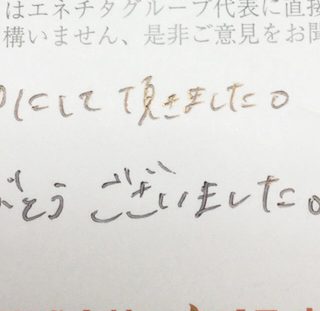 はエネチタグループ代表に直接
構いません、是非ご意見をお聞
にして頂きました。
がとう ございました。